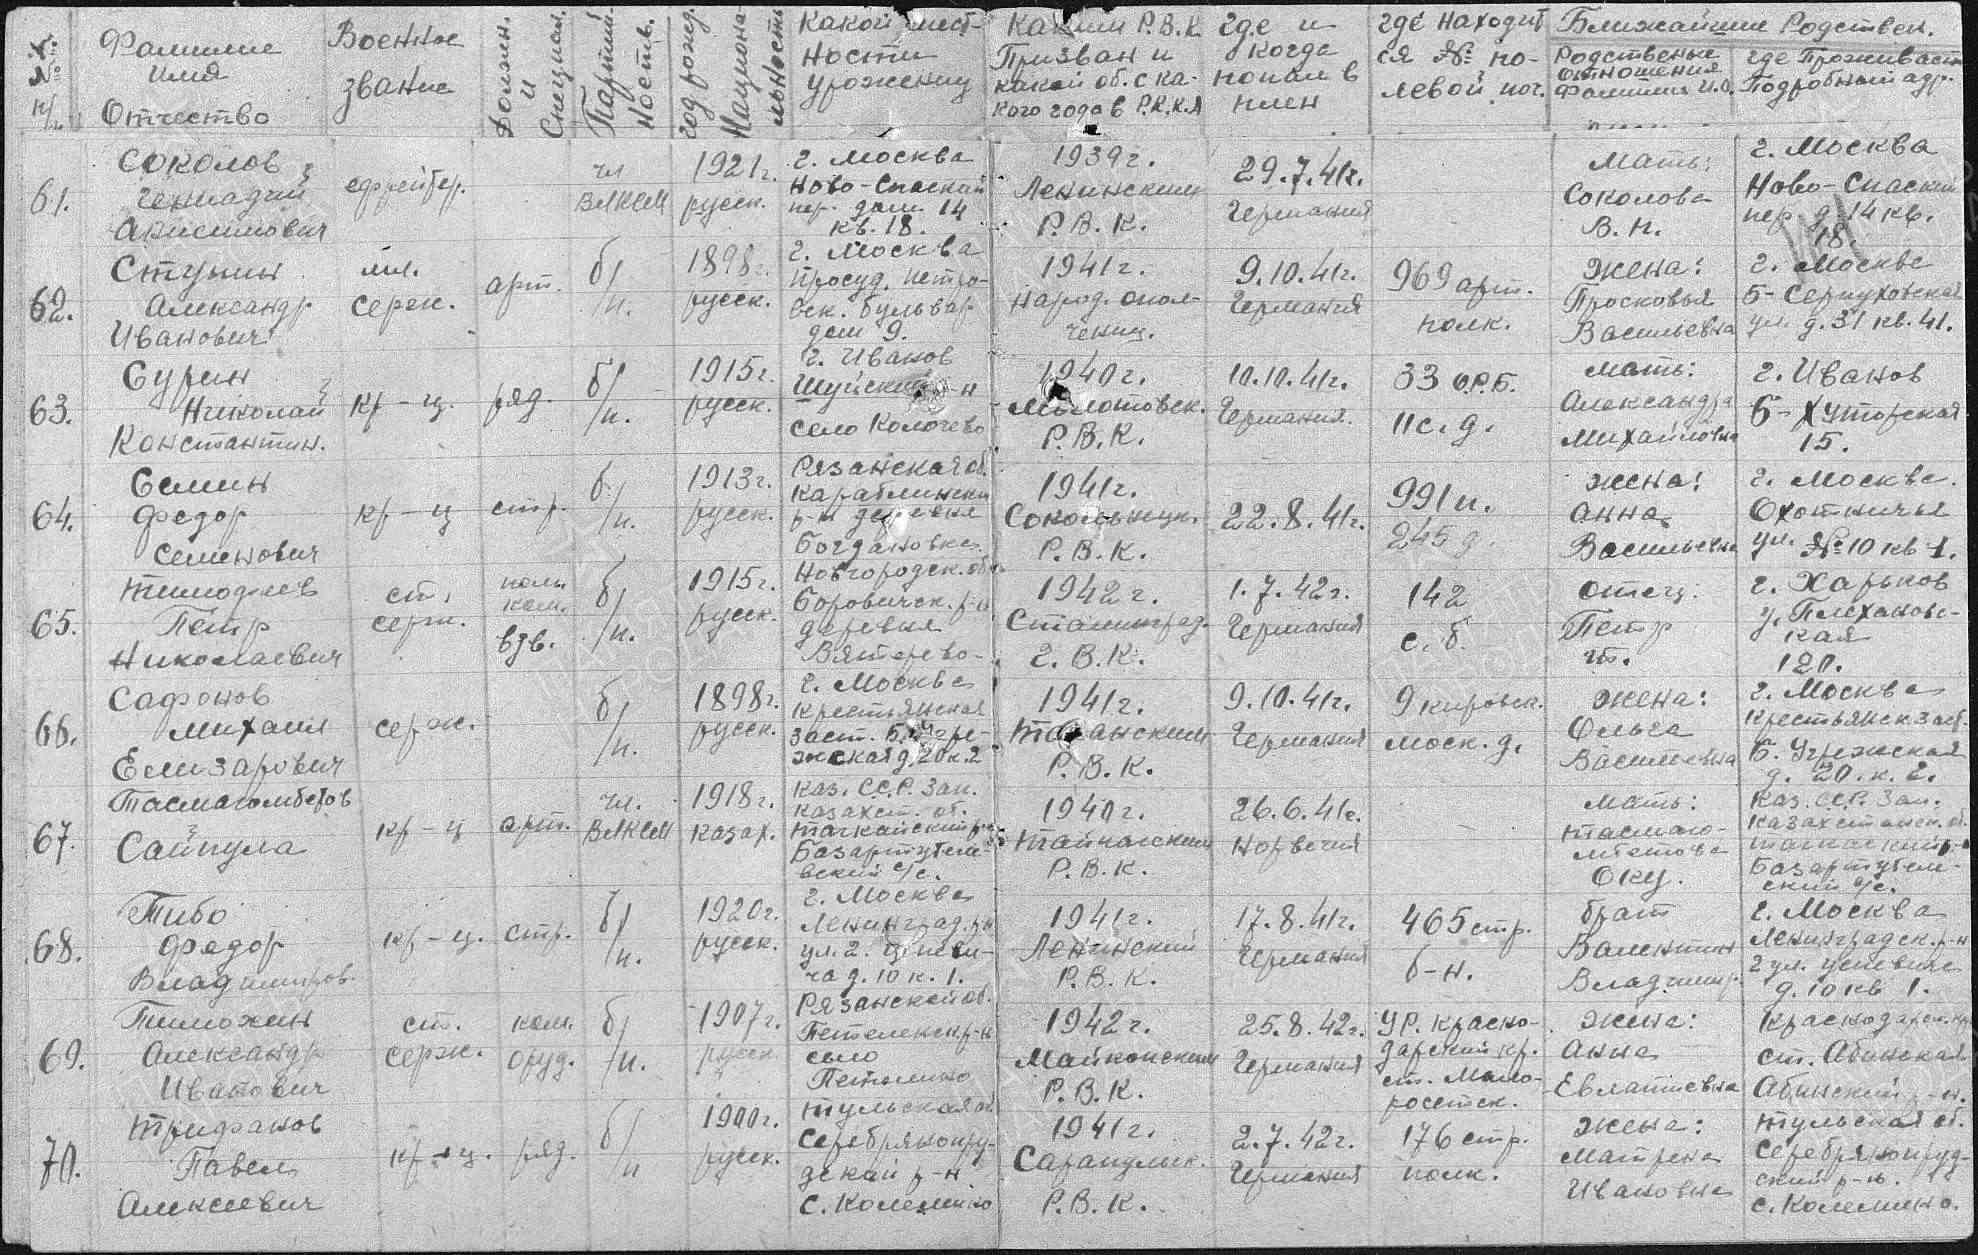 №№ п/п
Фамилие имя Отчество
Военное звание
Должн. и Специал.
Партий-ность.
год рожд. Национа-льность
Какой мест-ности урожениц
Каким Р.В.К. Призван и какой об. с ка-кого года в Р.К.К.А
Где и когда попал в плен
где находит ся № по-левой поч.
Ближайшие Родствен.
Родственные отношения Фамилия И.О.
где Проживает Подробный адр.
61.
Соколов Геннадий
ефрейтор.
чл ВЛКСМ
1921г. русск.
г. Москва Ново-Спаский пер. дом. 14 кв. 18.
1939г. Ленинским Р.В.К.
29.7.41г. Германия
Мать: Соколова В.Н.
г. Москва Ново-Спаский пер. д. 14 кв. 18.
62.
Ступин Александр Иванович
мл. серж.
арт.
б/п.
1898г. русск.
г. Москва Петро-вск. бульвар дом 9.
1941г. Народ. опол-чениц.
9.10.41г. Германия
969 арт. полк.
жена: Просковья Васильевна
г. Москва Б-Серпуховская ул. д. 31 кв. 41.
63.
Сурин Николай Константин.
кр-ц.
ряд.
б/п.
1915г. русск.
г. Иванов Шуйский р-н село Колочево
1940г. Молотовск. Р.В.К.
10.10.41г. Германия.
33 О.Р.Б. 11 с.д.
мать: Александра Михайловна
г. Иванов Б-Хуторская 15.
64.
Семин Федор Семенович
кр-ц
стр.
б/п.
1913г. русск.
Рязанская об. Кораблински р-н деревня Богдановка
1941г. Сокольницк. Р.В.К.
22.8.41г.
991 п. 245 д.
жена: Анна Васильевна
г. Москва. Охотничья ул. № 10 кв 1.
65.
Тимофиев Петр Николаевич
ст. серж.
пом. ком. взв.
б/п.
1915г. русск.
Новгородск. об. Боровичск. р-н деревня
1942г. Сталинград. Г.В.К.
1.7.42г. Германия
142 с.б.
отец: Петр Т.
г. Харьков у. Плехановс-кая 120.
66.
Сафонов Михаил Елизарович
серж.
б/п.
1898г. русск.
г. Москва крестьянская заст. Б. Угре-жская д. 20 к. 2
1941г. Таганским Р.В.К.
9.10.41г. Германия
9 кировск. моск. д.
жена: Ольга Васильевна
г. Москва Крестьянск заст. Б. Угрежская д. 20. к. 2.
67.
Тасмагомбетов Сайпула
кр-ц
арт.
чл. ВЛКСМ
1918г. казах.
Каз. С.С.Р. Зап. Казахст. об.
с/с.
1940г. Р.В.К.
26.6.41г. Норвегия
мать: Оку.
Каз. С.С.Р. Зап. Казахстанск. об.
с/с.
68.
Тибо Федор Владимиров.
кр-ц.
стр.
б/п.
1920г. русск.
г. Москва Ленинград. р-н ул. 2. д. 10 к. 1.
1941г. Ленинский Р.В.К.
17.8.41г. Германия
465 стр. б-н.
брат Валентин Владимир.
г. Москва Ленинградск. р-н 2 ул. д. 10 кв 1.
69.
Тимохин Александр Иванович
ст. серж.
ком. оруд.
б/п.
1907г. русск.
Рязанской об. р-н село Петелино
1942г. Майкопским Р.В.К.
25.8.42г. Германия
УР. Красно-дарский кр. ст. Мало-росстск.
жена: Анна Евлатиевна
Краснодарск. кр ст. Абинская Абинский р-н.
70.
Трифанов Павел Алексеевич
кр-ц.
ряд.
б/п
1900г. русск.
Тульская об Серебрянопру-дской р-н с. Колемино
1941г. Сарапульск. Р.В.К.
2.7.42г. Германия
176 стр. полк.
жена: Матрена Ивановна
Тульская об. Серебрянопруд-ский р-н. с. Колемино.